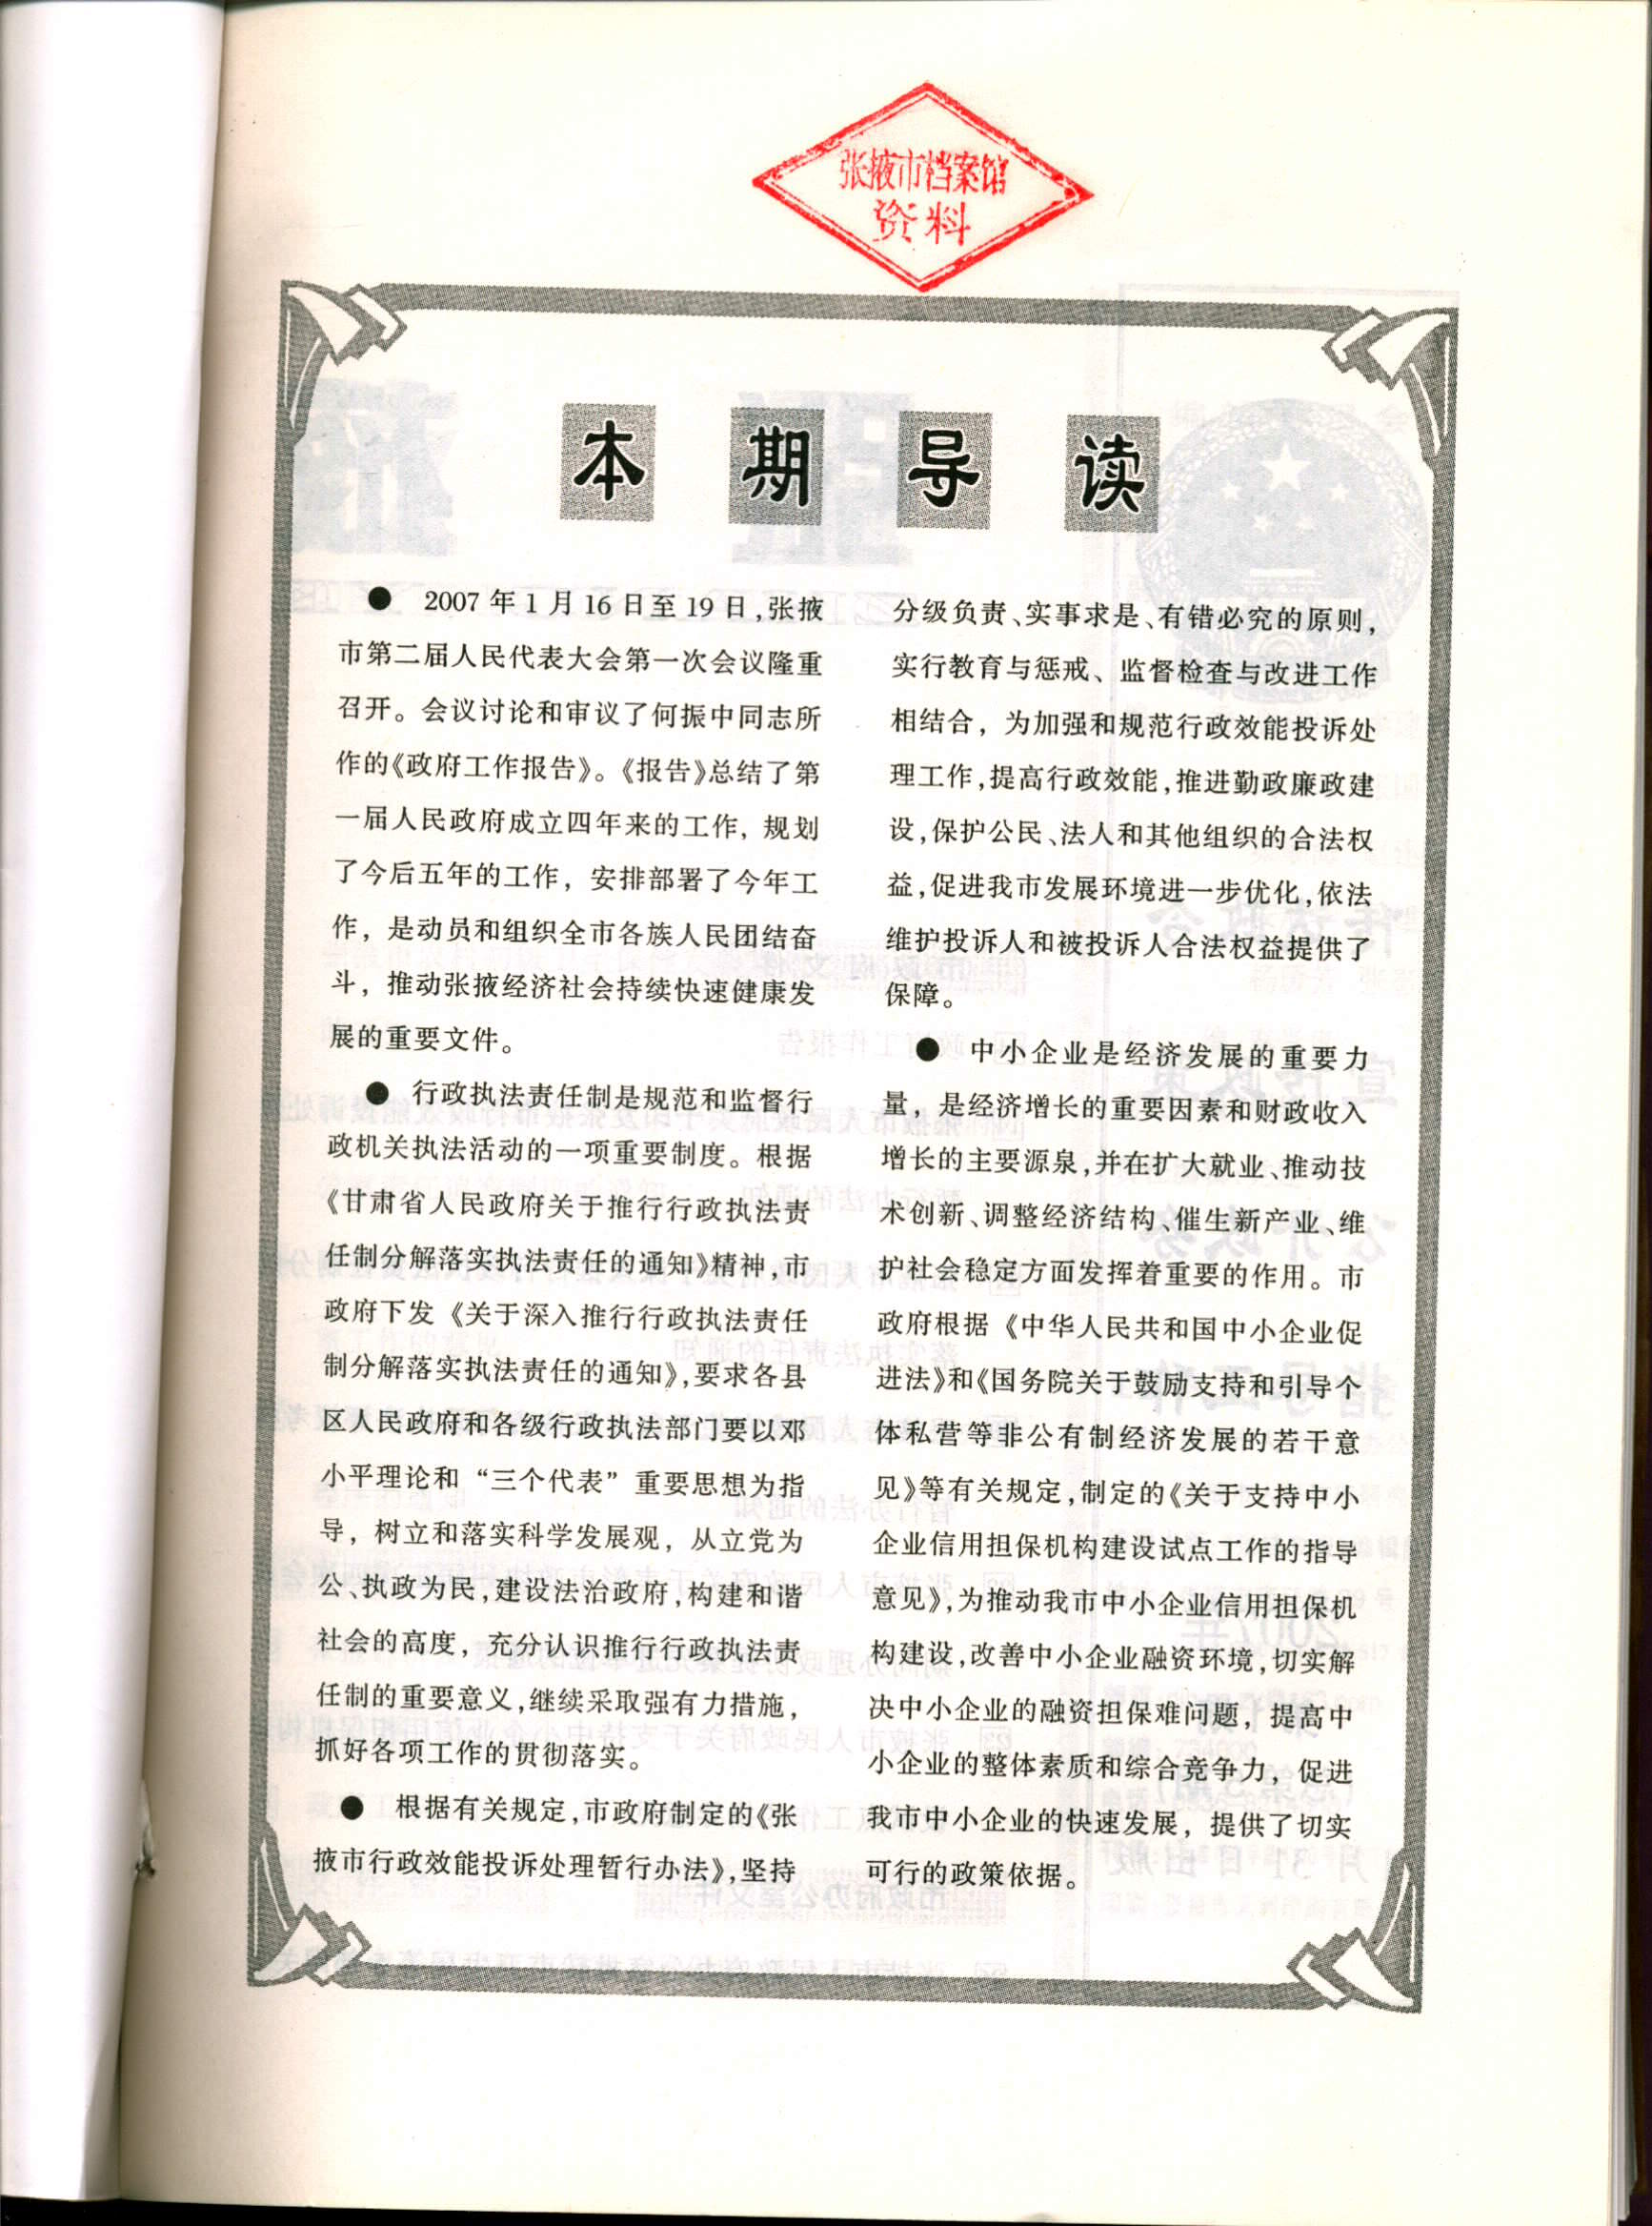 张掖市档案馆
资料
本期导读
● 2007年1月16日至19日,张掖
市第二届人民代表大会第一次会议隆重
召开。会议讨论和审议了何振中同志所
作的《政府工作报告》。《报告》总结了第
一届人民政府成立四年来的工作,规划
了今后五年的工作,安排部署了今年工
作,是动员和组织全市各族人民团结奋
斗,推动张掖经济社会持续快速健康发
展的重要文件。
● 行政执法责任制是规范和监督行
政机关执法活动的一项重要制度。根据
《甘肃省人民政府关于推行行政执法责
任制分解落实执法责任的通知》精神,市
政府下发《关于深入推行行政执法责任
制分解落实执法责任的通知》,要求各县
区人民政府和各级行政执法部门要以邓
小平理论和“三个代表”重要思想为指
导,树立和落实科学发展观,从立党为
公、执政为民,建设法治政府,构建和谐
社会的高度,充分认识推行行政执法责
任制的重要意义,继续采取强有力措施,
抓好各项工作的贯彻落实。
● 根据有关规定,市政府制定的《张
掖市行政效能投诉处理暂行办法》,坚持
分级负责、实事求是、有错必究的原则,
实行教育与惩戒、监督检查与改进工作
相结合,为加强和规范行政效能投诉处
理工作,提高行政效能,推进勤政廉政建
设,保护公民、法人和其他组织的合法权
益,促进我市发展环境进一步优化,依法
维护投诉人和被投诉人合法权益提供了
保障。
● 中小企业是经济发展的重要力
量,是经济增长的重要因素和财政收入
增长的主要源泉,并在扩大就业、推动技
术创新、调整经济结构、催生新产业、维
护社会稳定方面发挥着重要的作用。市
政府根据《中华人民共和国中小企业促
进法》和《国务院关于鼓励支持和引导个
体私营等非公有制经济发展的若干意
见》等有关规定,制定的《关于支持中小
企业信用担保机构建设试点工作的指导
意见》,为推动我市中小企业信用担保机
构建设,改善中小企业融资环境,切实解
决中小企业的融资担保难问题,提高中
小企业的整体素质和综合竞争力,促进
我市中小企业的快速发展,提供了切实
可行的政策依据。